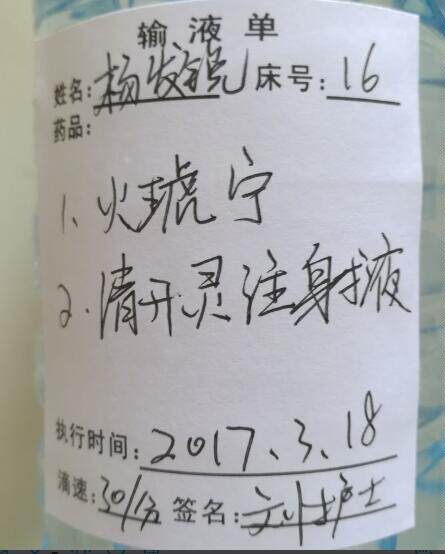 输液单
姓名:杨发锐 床号:16
药品:
1、火琥宁
2、清开灵注射液
执行时间:2017.3.18
滴速:30/分 签名:刘护士